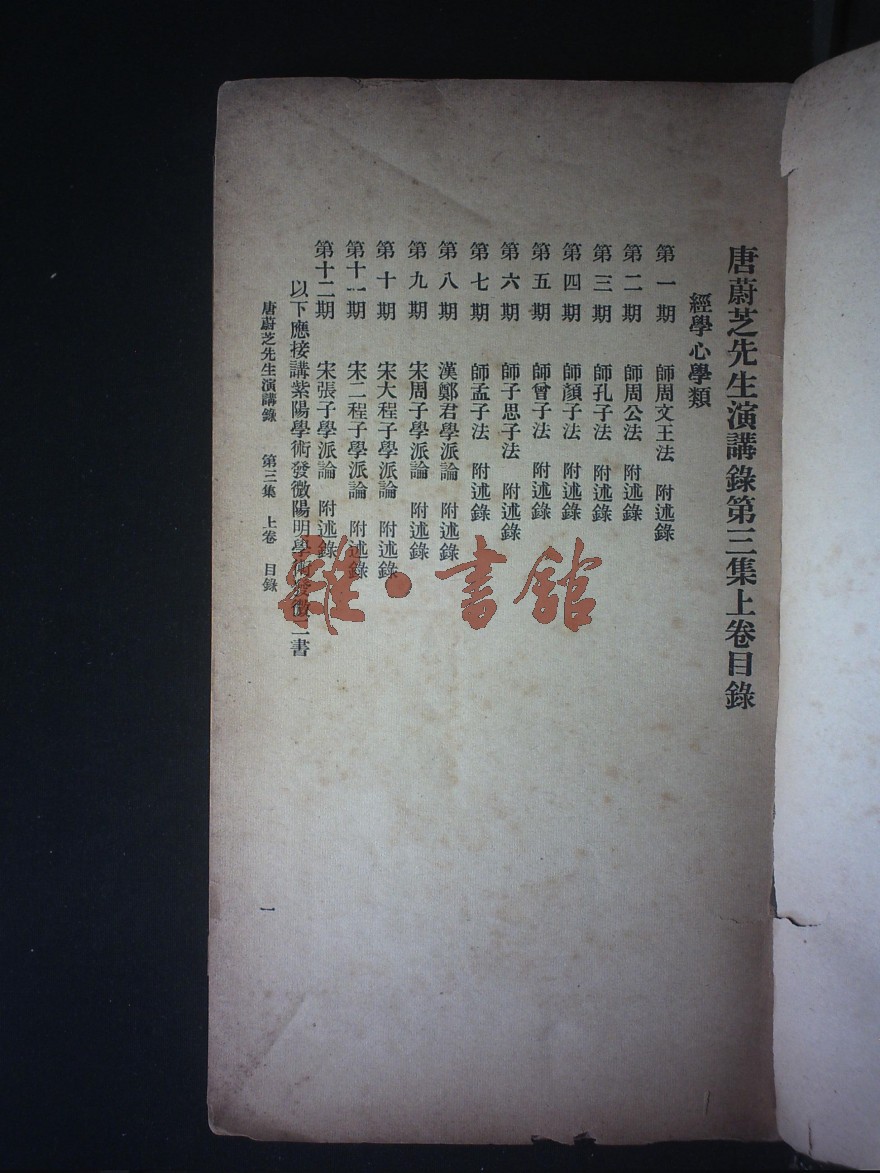 唐蔚芝先生演講錄第三集上卷目錄
經學心學類
第一期 師周文王法 附述錄
第二期 師周公法 附述錄
第三期 師孔子法 附述錄
第四期 師顏子法 附述錄
第五期 師曾子法 附述錄
第六期 師子思子法 附述錄
第七期 師孟子法 附述錄
第八期 漢鄭君學派論 附述錄
第九期 宋周子學派論 附述錄
第十期 宋大程子學派論 附述錄
第十一期 宋二程子學派論 附述錄
第十二期 宋張子學派論 附述錄
以下應接講紫陽學術發微陽明學術發微二書
唐蔚芝先生演講錄 第三集 上卷 目錄
一
雜·書館